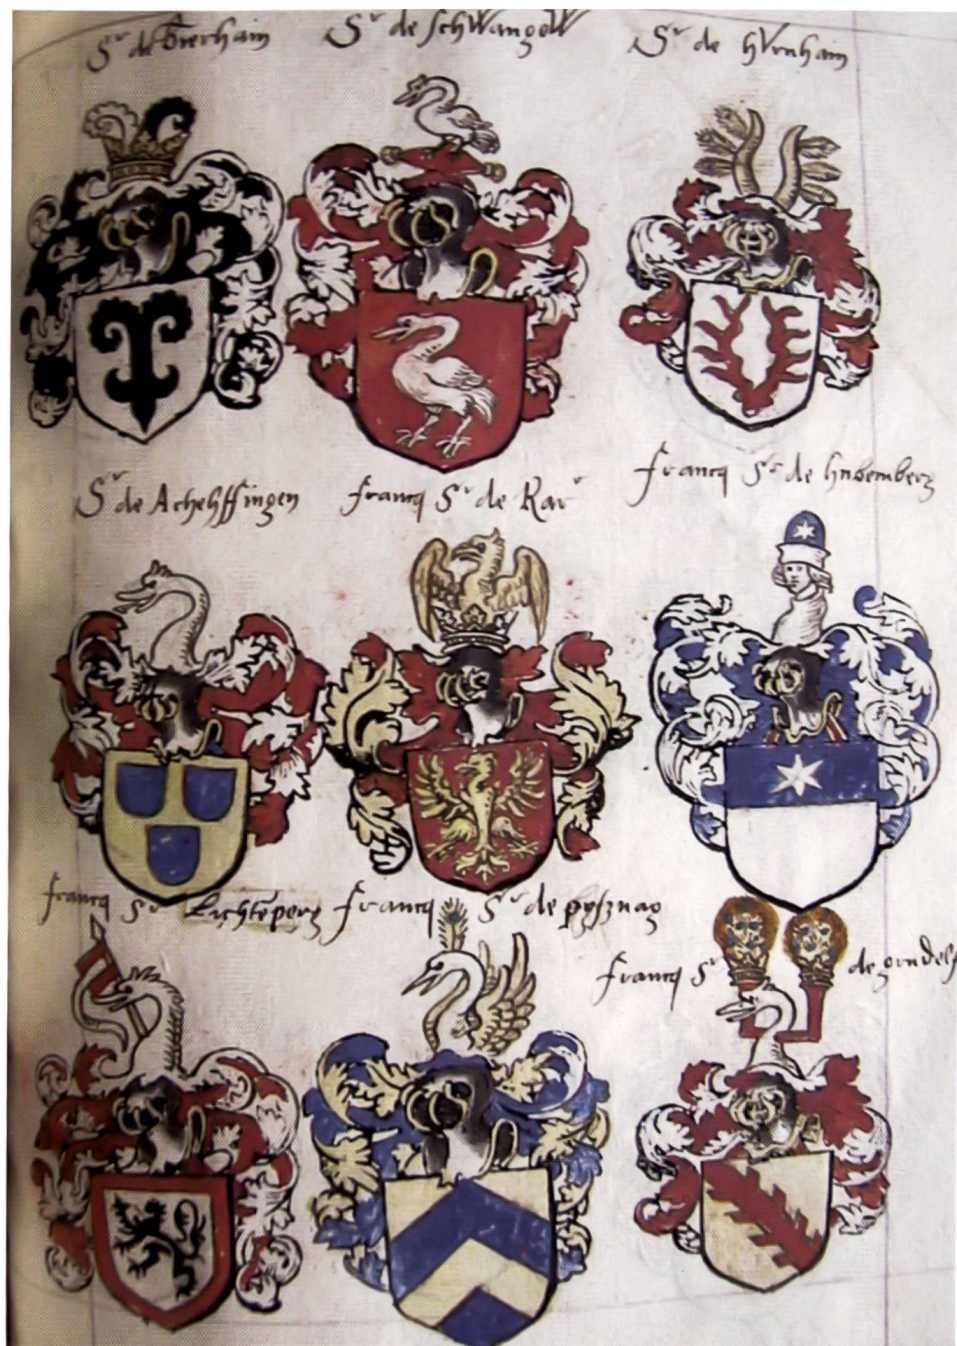 Sr de Bierhain
Sr de schwangow
Sr de hurnhain
Sr de Achelffingen
francq Sr de Rar
francq Sr de hubemberg
francq Sr Lichteperg
francq Sr de
francq Sr de grudels